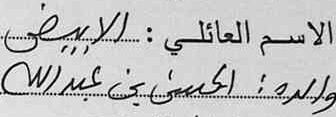 الاسم العائلي : الابيض
والده : الحسن بن عبد الله